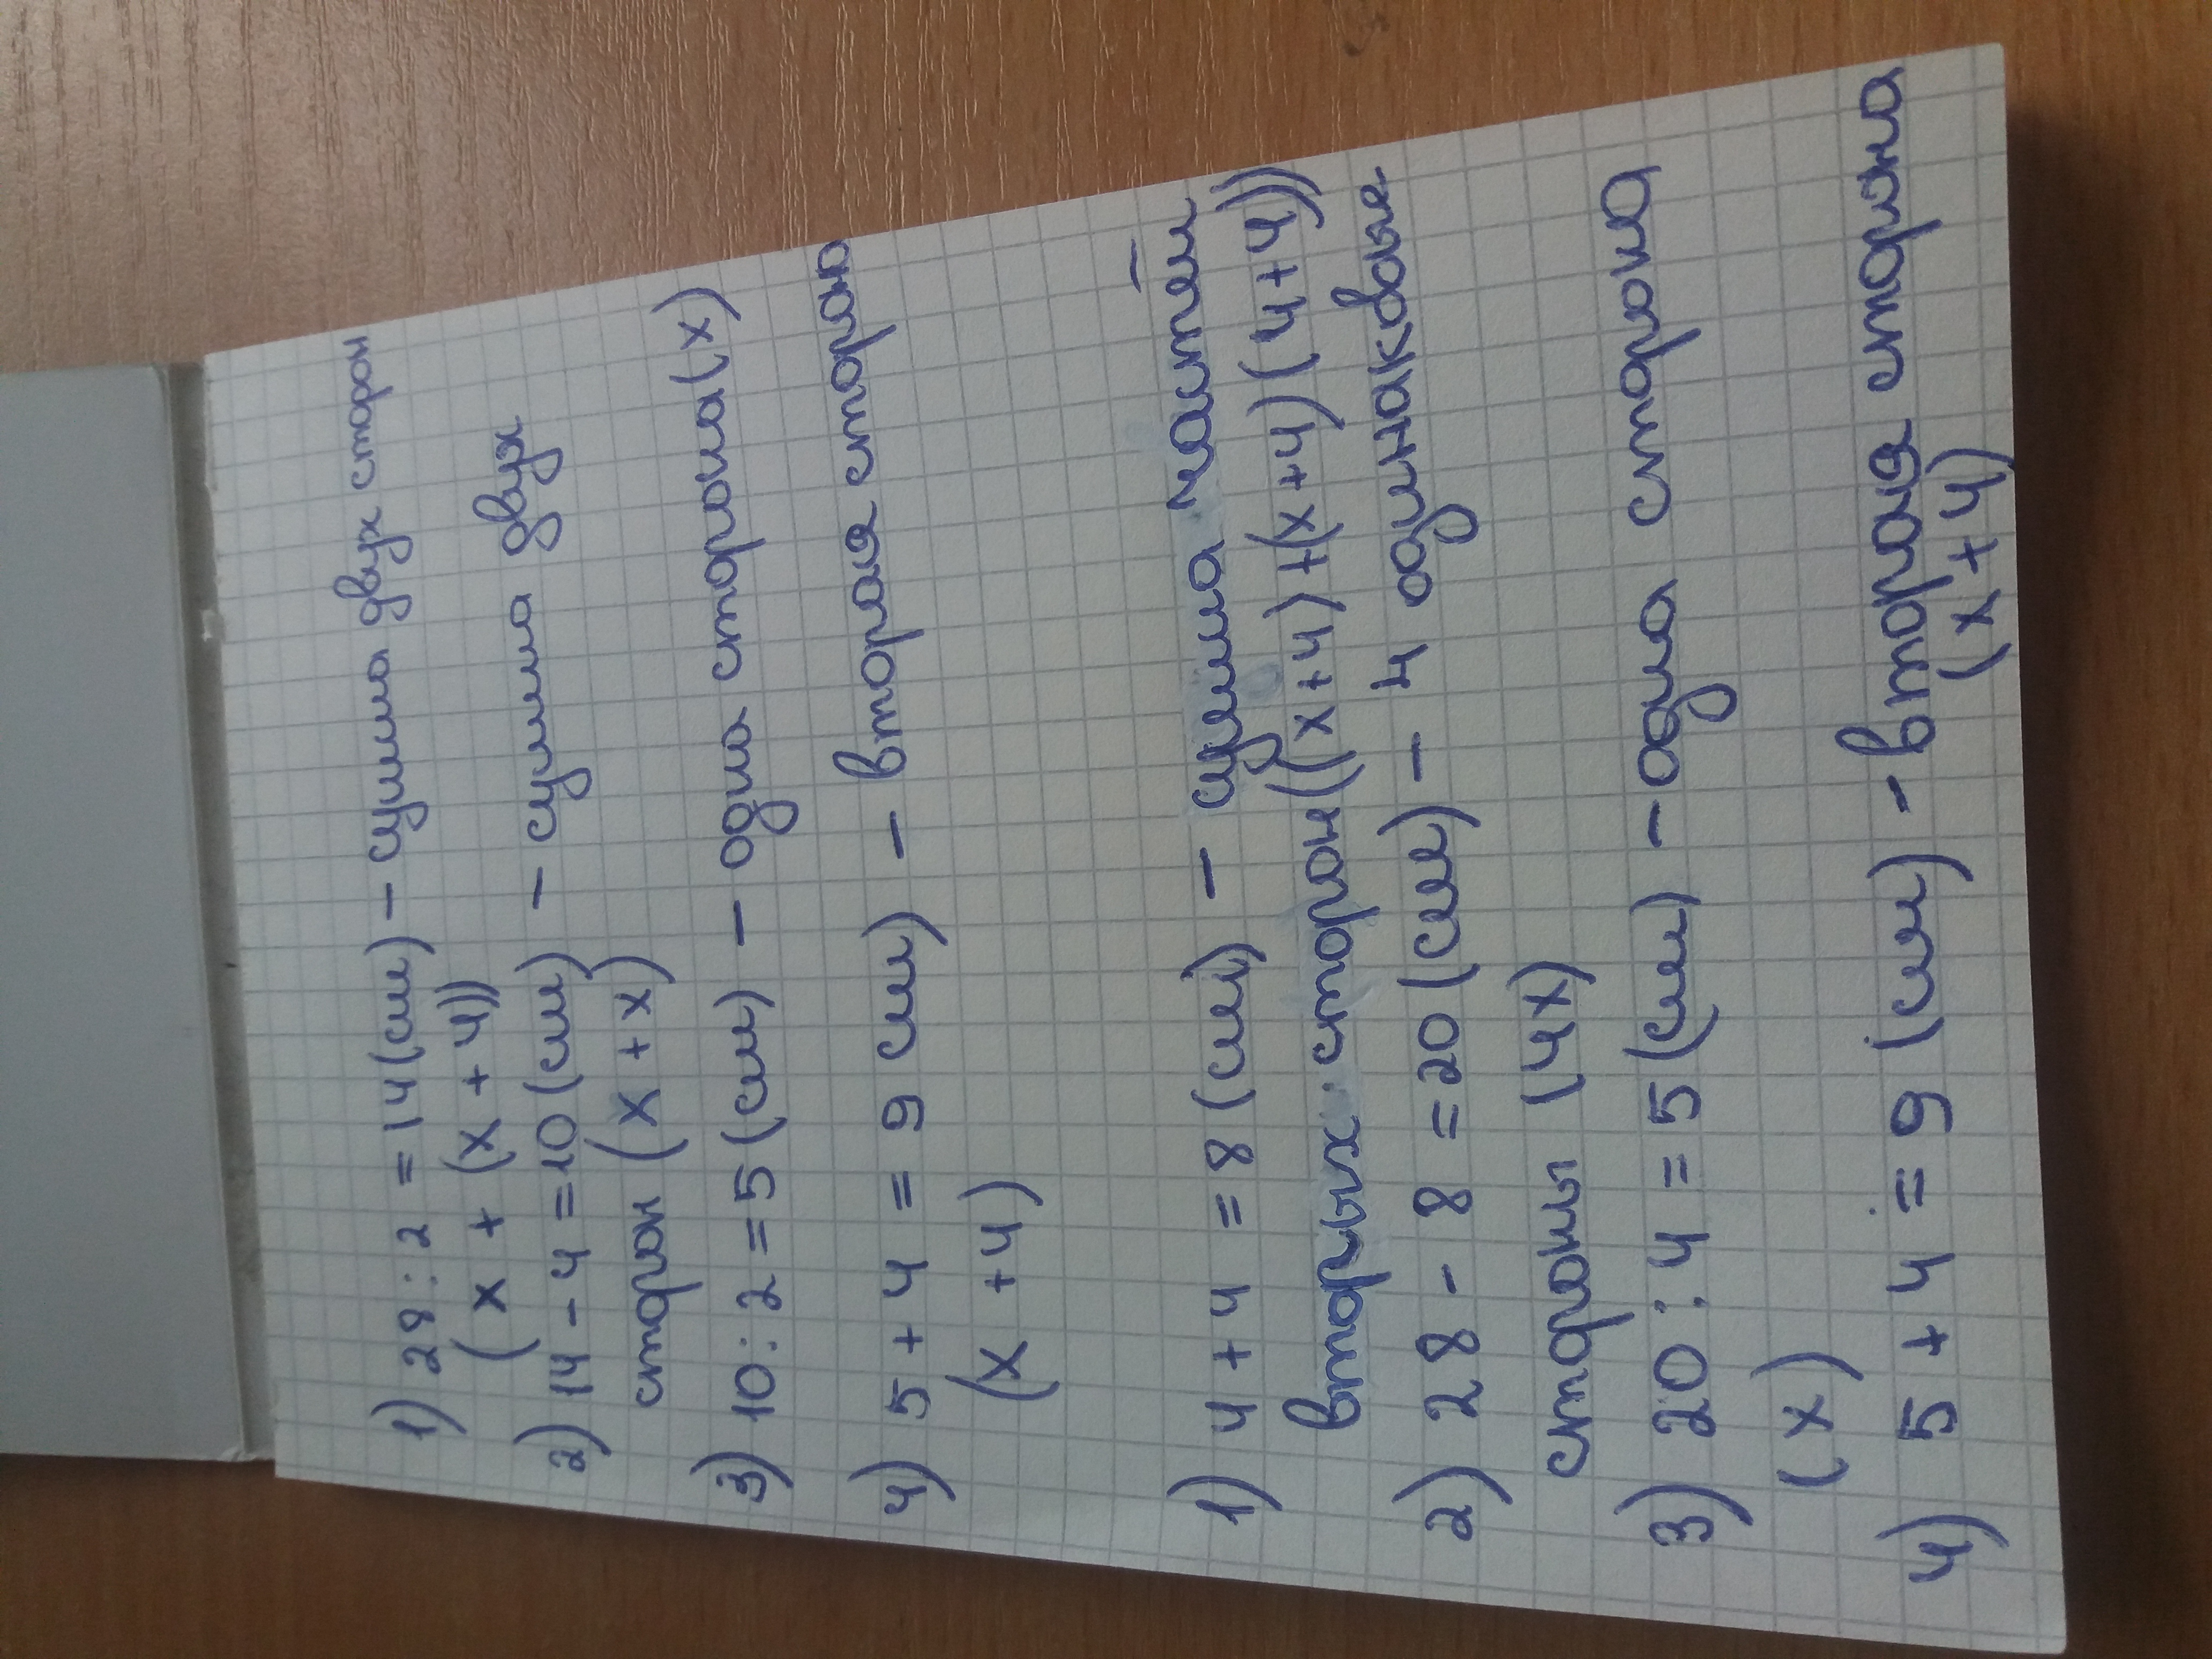 1) 28 : 2 = 14 (см) - сумма двух сторон
(x + (x + 4))
2) 14 - 4 = 10 (см) - сумма двух
сторон (x + x)
3) 10 : 2 = 5 (см) - одна сторона (x)
4) 5 + 4 = 9 см) - вторая сторона
(x + 4)
1) 4 + 4 = 8 (см) - сумма частей
вторых сторон ((x + 4) + (x + 4) (4 + 4))
2) 28 - 8 = 20 (см) - 4 одинаквые
стороны (4x)
3) 20 : 4 = 5 (см) - одна сторона
(x)
4) 5 + 4 = 9 (см) - вторая сторона
(x + 4)